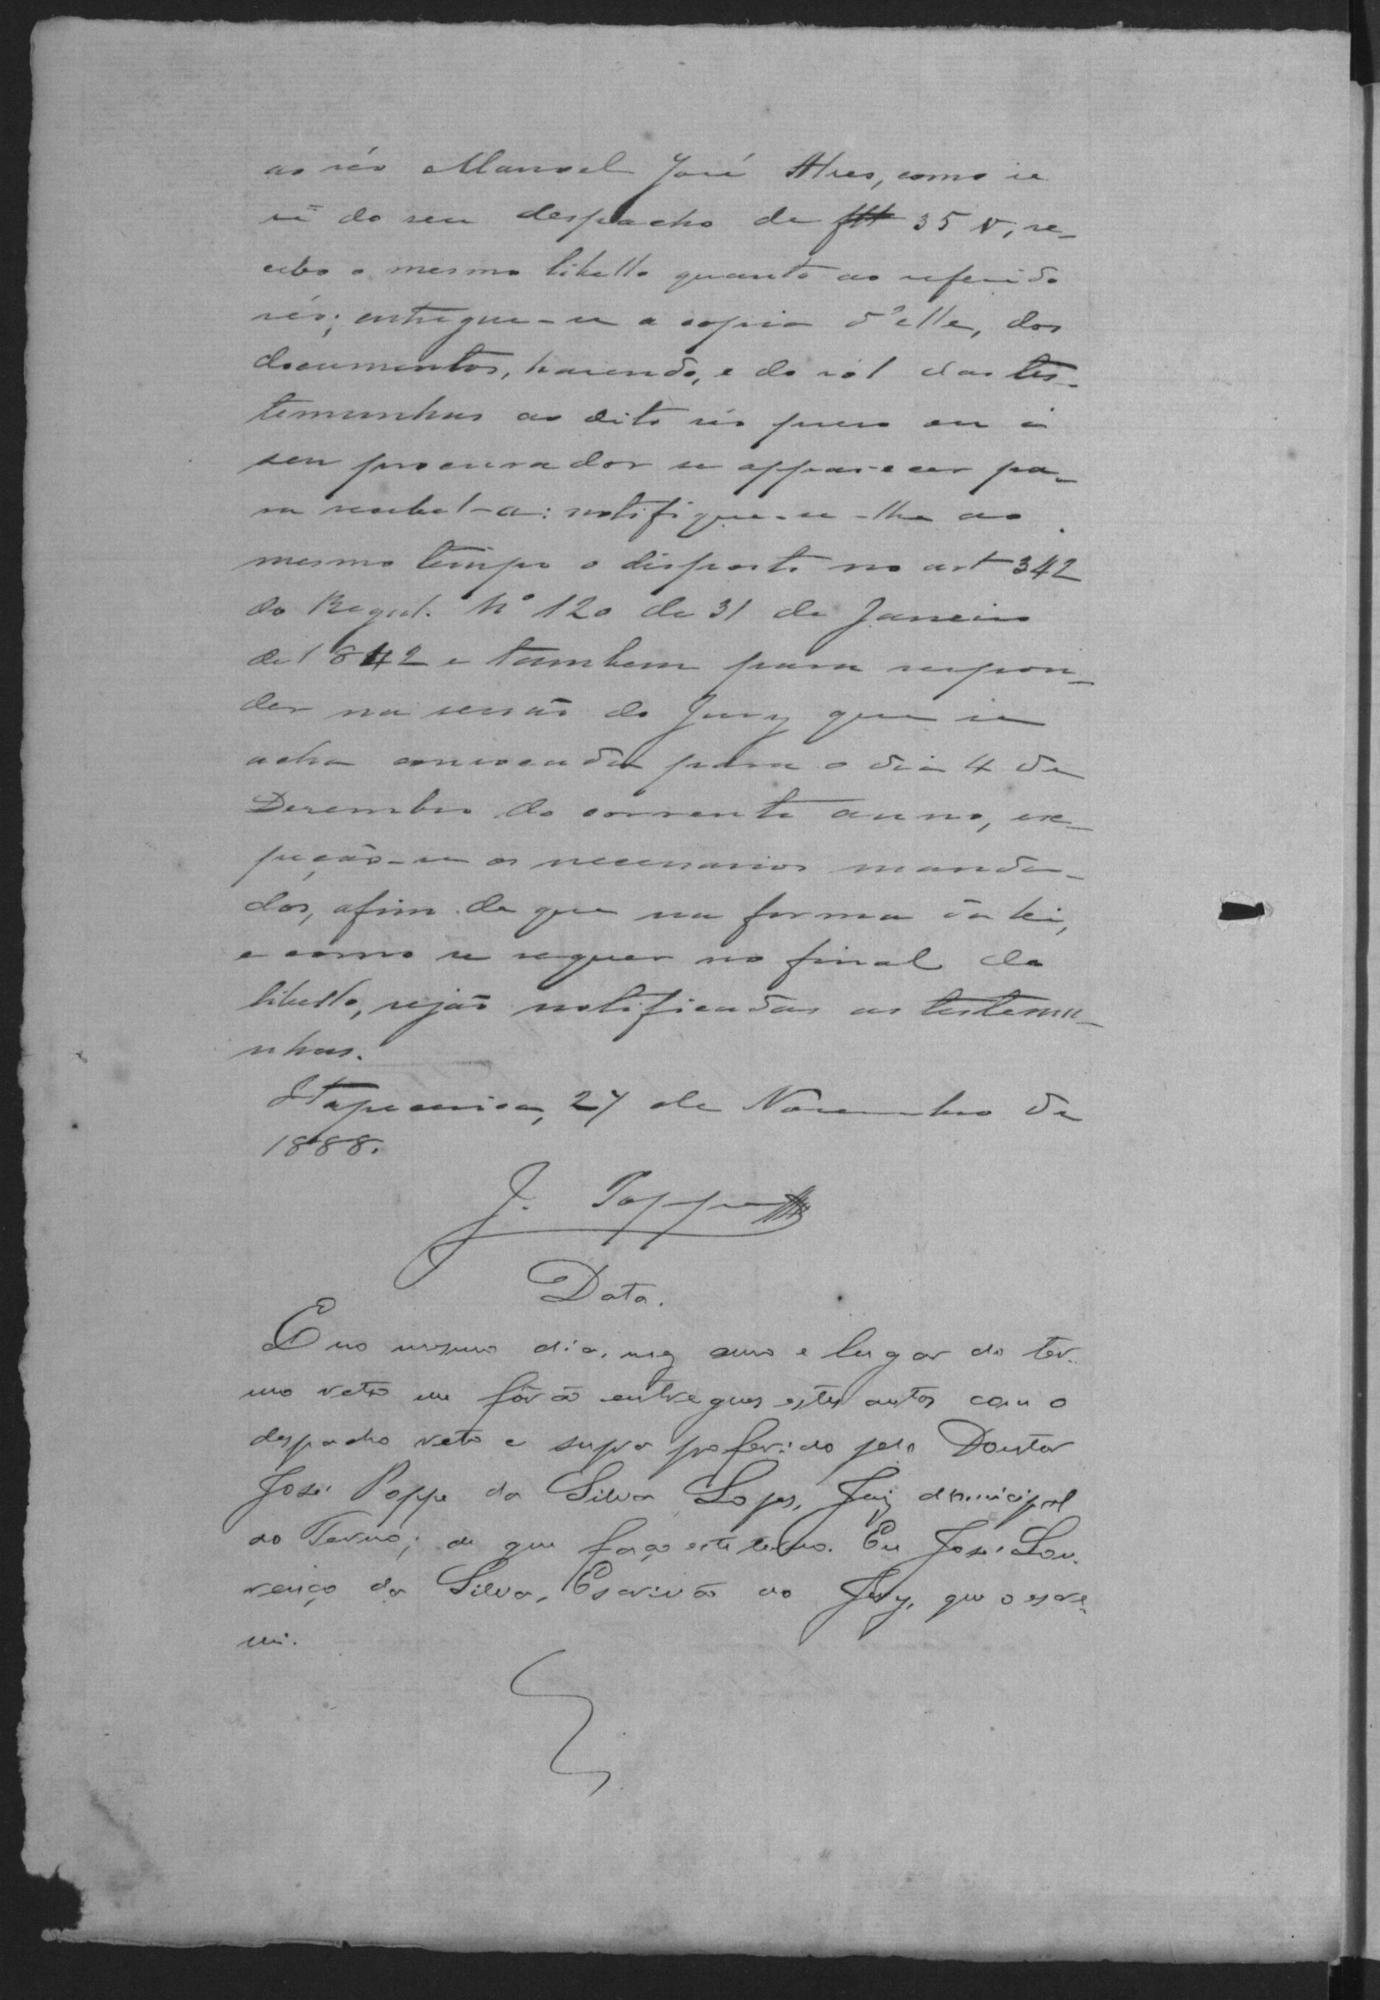 ao réo Manoel José Alves, como se
vê do seu despacho de fls 35 v, re-
cebo o mesmo libello quanto ao referido
réo; entregue-se a copia d'elle, dos
documentos, havendo, e do rol das tes-
temunhas ao dito réo preso ou á
seu procurador se apparecer pa-
ra recebel-a: notifique-se-lhe ao
mesmo tempo o disposto no art 342
do Regul. Nº 120 de 31 de Janeiro
de 1842 e tambem para respon-
der na sessão do Jury que se
acha convocada para o dia 4 de
Dezembro do corrente anno, ex-
peção-se os necessarios manda-
dos, afim de que na forma da lei,
e como se requer no final do
libello, sejão notificadas as testemu-
nhas.
Itapecerica, 27 de Novembro de
1888.
J. Poppe
Data.
E no mesmo dia, mez anno e lugar do ter-
mo retro me fôrão entregues estes autos com o
despacho retro e supra proferido pelo Doutor
José Poppe da Silva Lopes, Juiz Municipal
do Termo; de que faço este termo. Eu José Lou-
renço da Silva, Escrivão do Jury, que o escre-
vi.